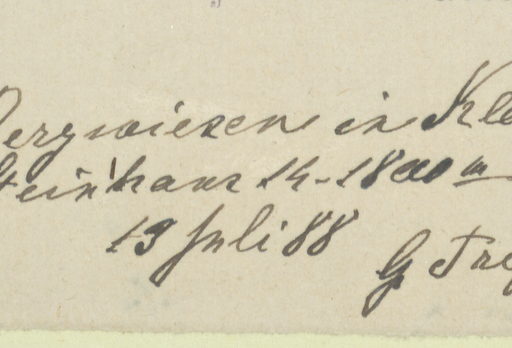 Bergwiesen in Kle
Steinhaus 14-1800 m
13 Juli 88
G Tre